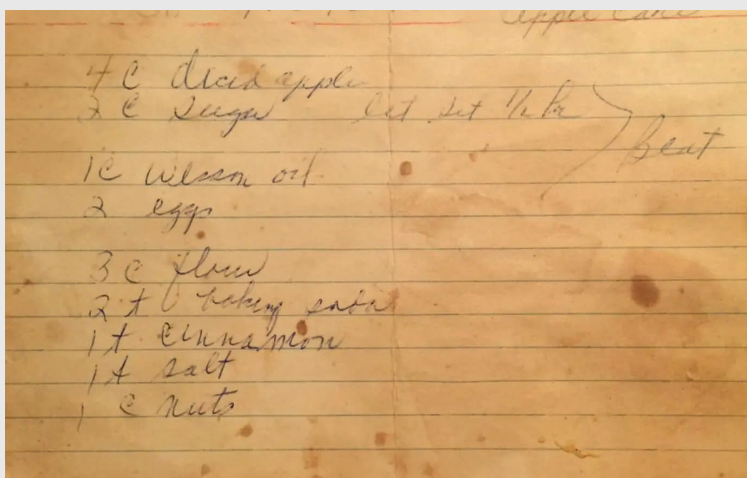 Apple Cake
4 C diced apple
2 C Suga let set 1/2 hr
Beat
1 C Wesson oil
2 eggs
3 C flour
2 t baking soda
1 t cinnamon
1 t salt
1 C nuts